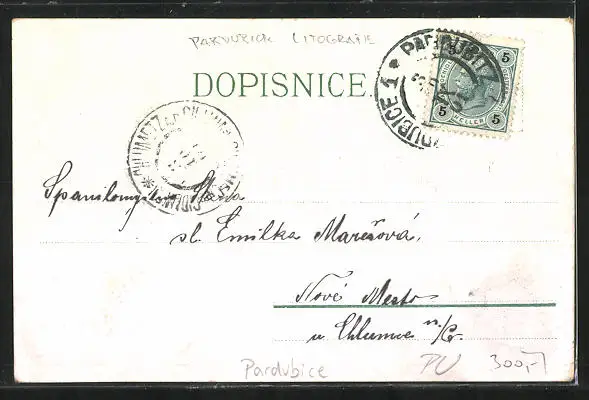 PARDUBICE LITOGRAFIE
DOPISNICE
PARDUBICE 1
5 5
5 5
HELLER
Spanilomyslná Slečna
sl. Emilka Marešová,
Nové Mesto
u Chlumce n./C.
Pardubice PU 300,-